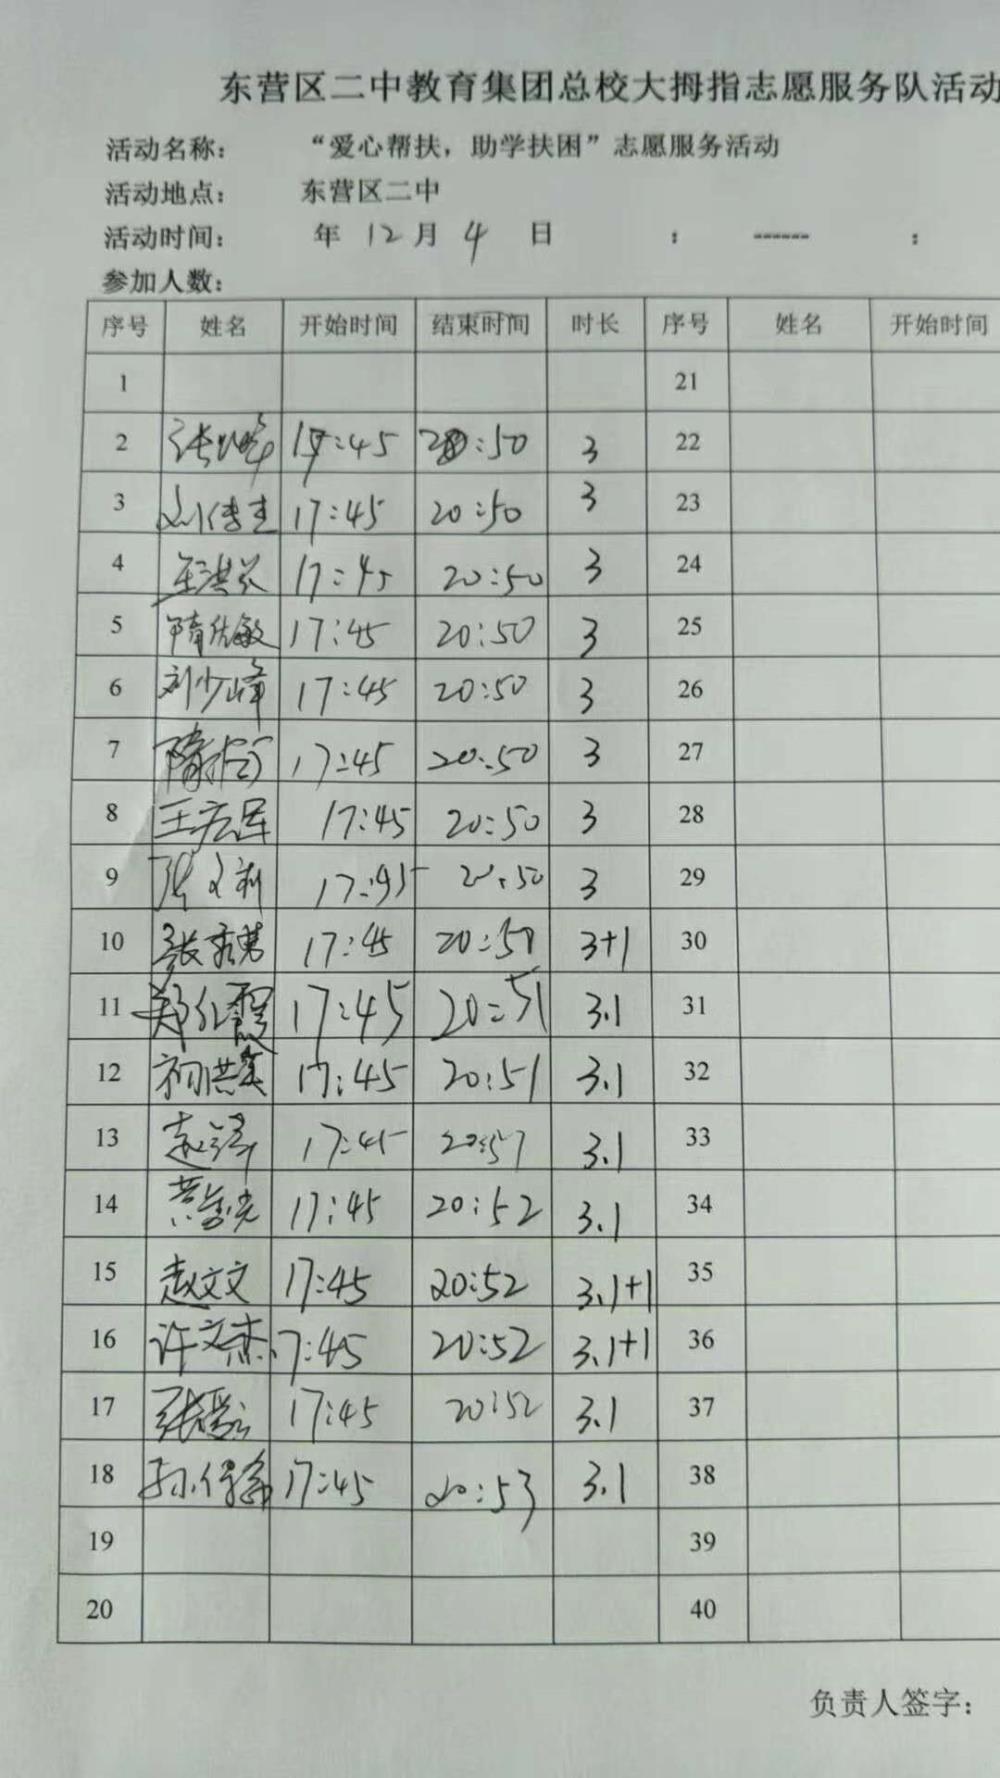 东营区二中教育集团总校大拇指志愿服务队活动
活动名称： “爱心帮扶，助学扶困”志愿服务活动
活动地点： 东营区二中
活动时间： 年 12 月 4 日 : ------ :
参加人数：
序号 姓名 开始时间 结束时间 时长 序号 姓名 开始时间
1 21
2 17:45 20:50 3 22
3 17:45 20:50 3 23
4 17:45 20:50 3 24
5 隋佐敏 17:45 20:50 3 25
6 刘少峰 17:45 20:50 3 26
7 17:45 20:50 3 27
8 王宏军 17:45 20:50 3 28
9 张文利 17:45 20:50 3 29
10 17:45 3+1 30
11 郑仁霞 17:45 20:51 3.1 31
12 17:45 20:51 3.1 32
13 17:45 3.1 33
14 17:45 20:52 3.1 34
15 赵文文 17:45 20:52 3.1+1 35
16 许文杰 17:45 20:52 3.1+1 36
17 17:45 20:52 3.1 37
18 17:45 20:53 3.1 38
19 39
20 40
负责人签字：